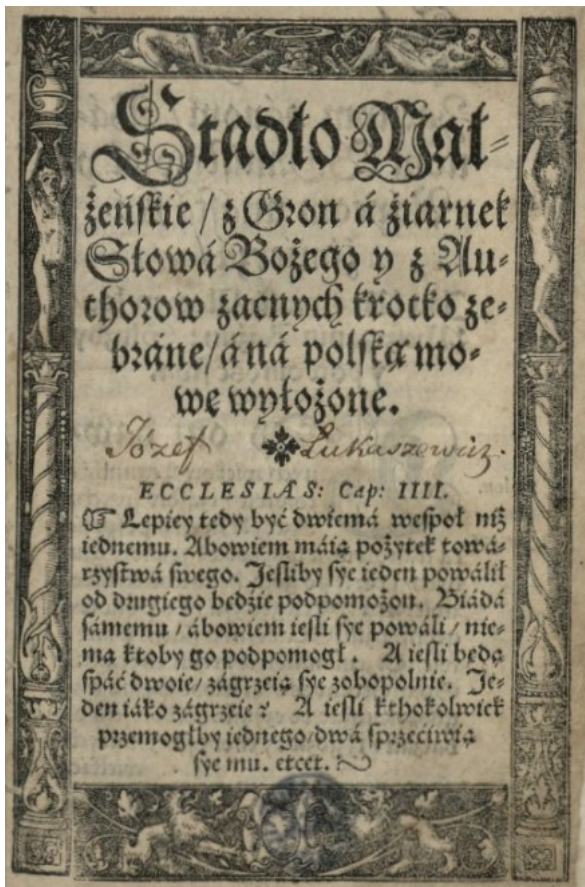 Stadło Mał-
żeńskie / z Gron á żiarnek
Słowá Bożego y z Au-
thorow zacnych krotko ze-
bráne / á ná polską mo-
wę wyłożone.
Józef Łukaszewicz.
ECCLESIAS: Cap: IIII.
☞ Lepiey tedy być dwiemá wespoł niż
iednemu. Abowiem máią pożytek towá-
rzystwá swego. Jesliby sye ieden powálił
od drugiego będzie podpomożon. Biádá
sámemu / ábowiem iesli sye powáli / nie-
ma ktoby go podpomogł. A iesli będą
spáć dwoie / zágrzeią sye zobopolnie. Je-
den iáko zágrzeie? A iesli kthokolwiek
przemogłby iednego / dwá sprzeciwią
sye mu. etcet.